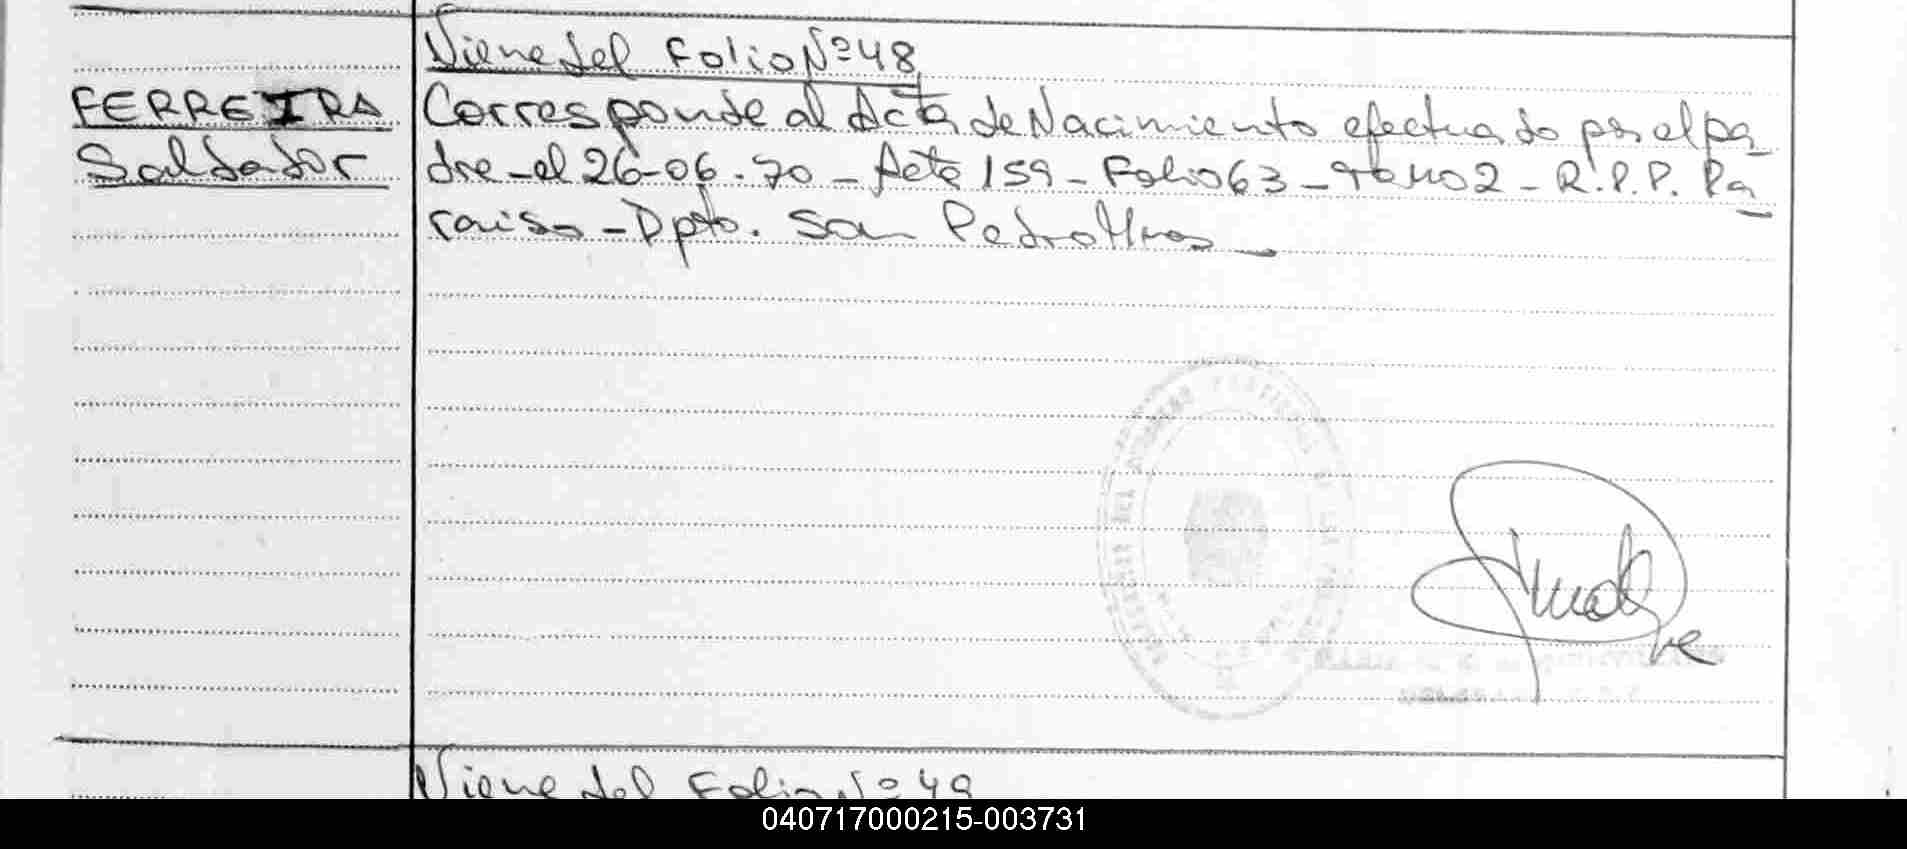 Viene del Folio Nº 48
FERREIRA
Saldador
Corresponde al Acta de Nacimiento efectuado por el pa
dre - el 26-06-70 - Acta 159 - Folio 63 - Tomo 2 - R.P.P. Pa
raiso - Dpto. San Pedro Mnes
Viene del Folio Nº 49
040717000215-003731